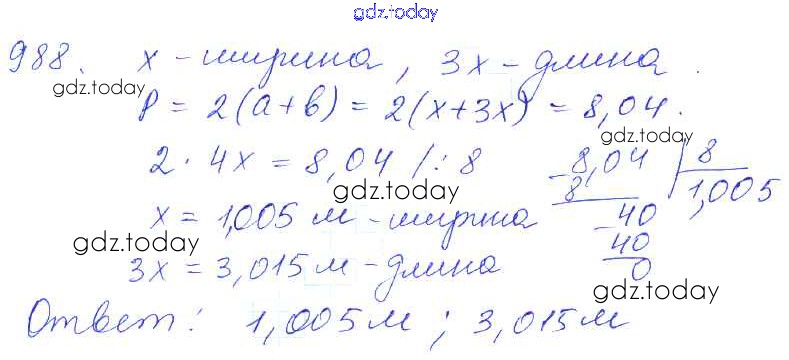 gdz.today
988. x – ширина, 3x – длина.
gdz.today
P = 2(a+b) = 2(x+3x) = 8,04.
gdz.today
2 · 4x = 8,04 /: 8
8,04 | 8
gdz.today
8
1,005
x = 1,005 м – ширина
40
gdz.today
40
3x = 3,015 м – длина
0
gdz.today
Ответ: 1,005 м; 3,015 м